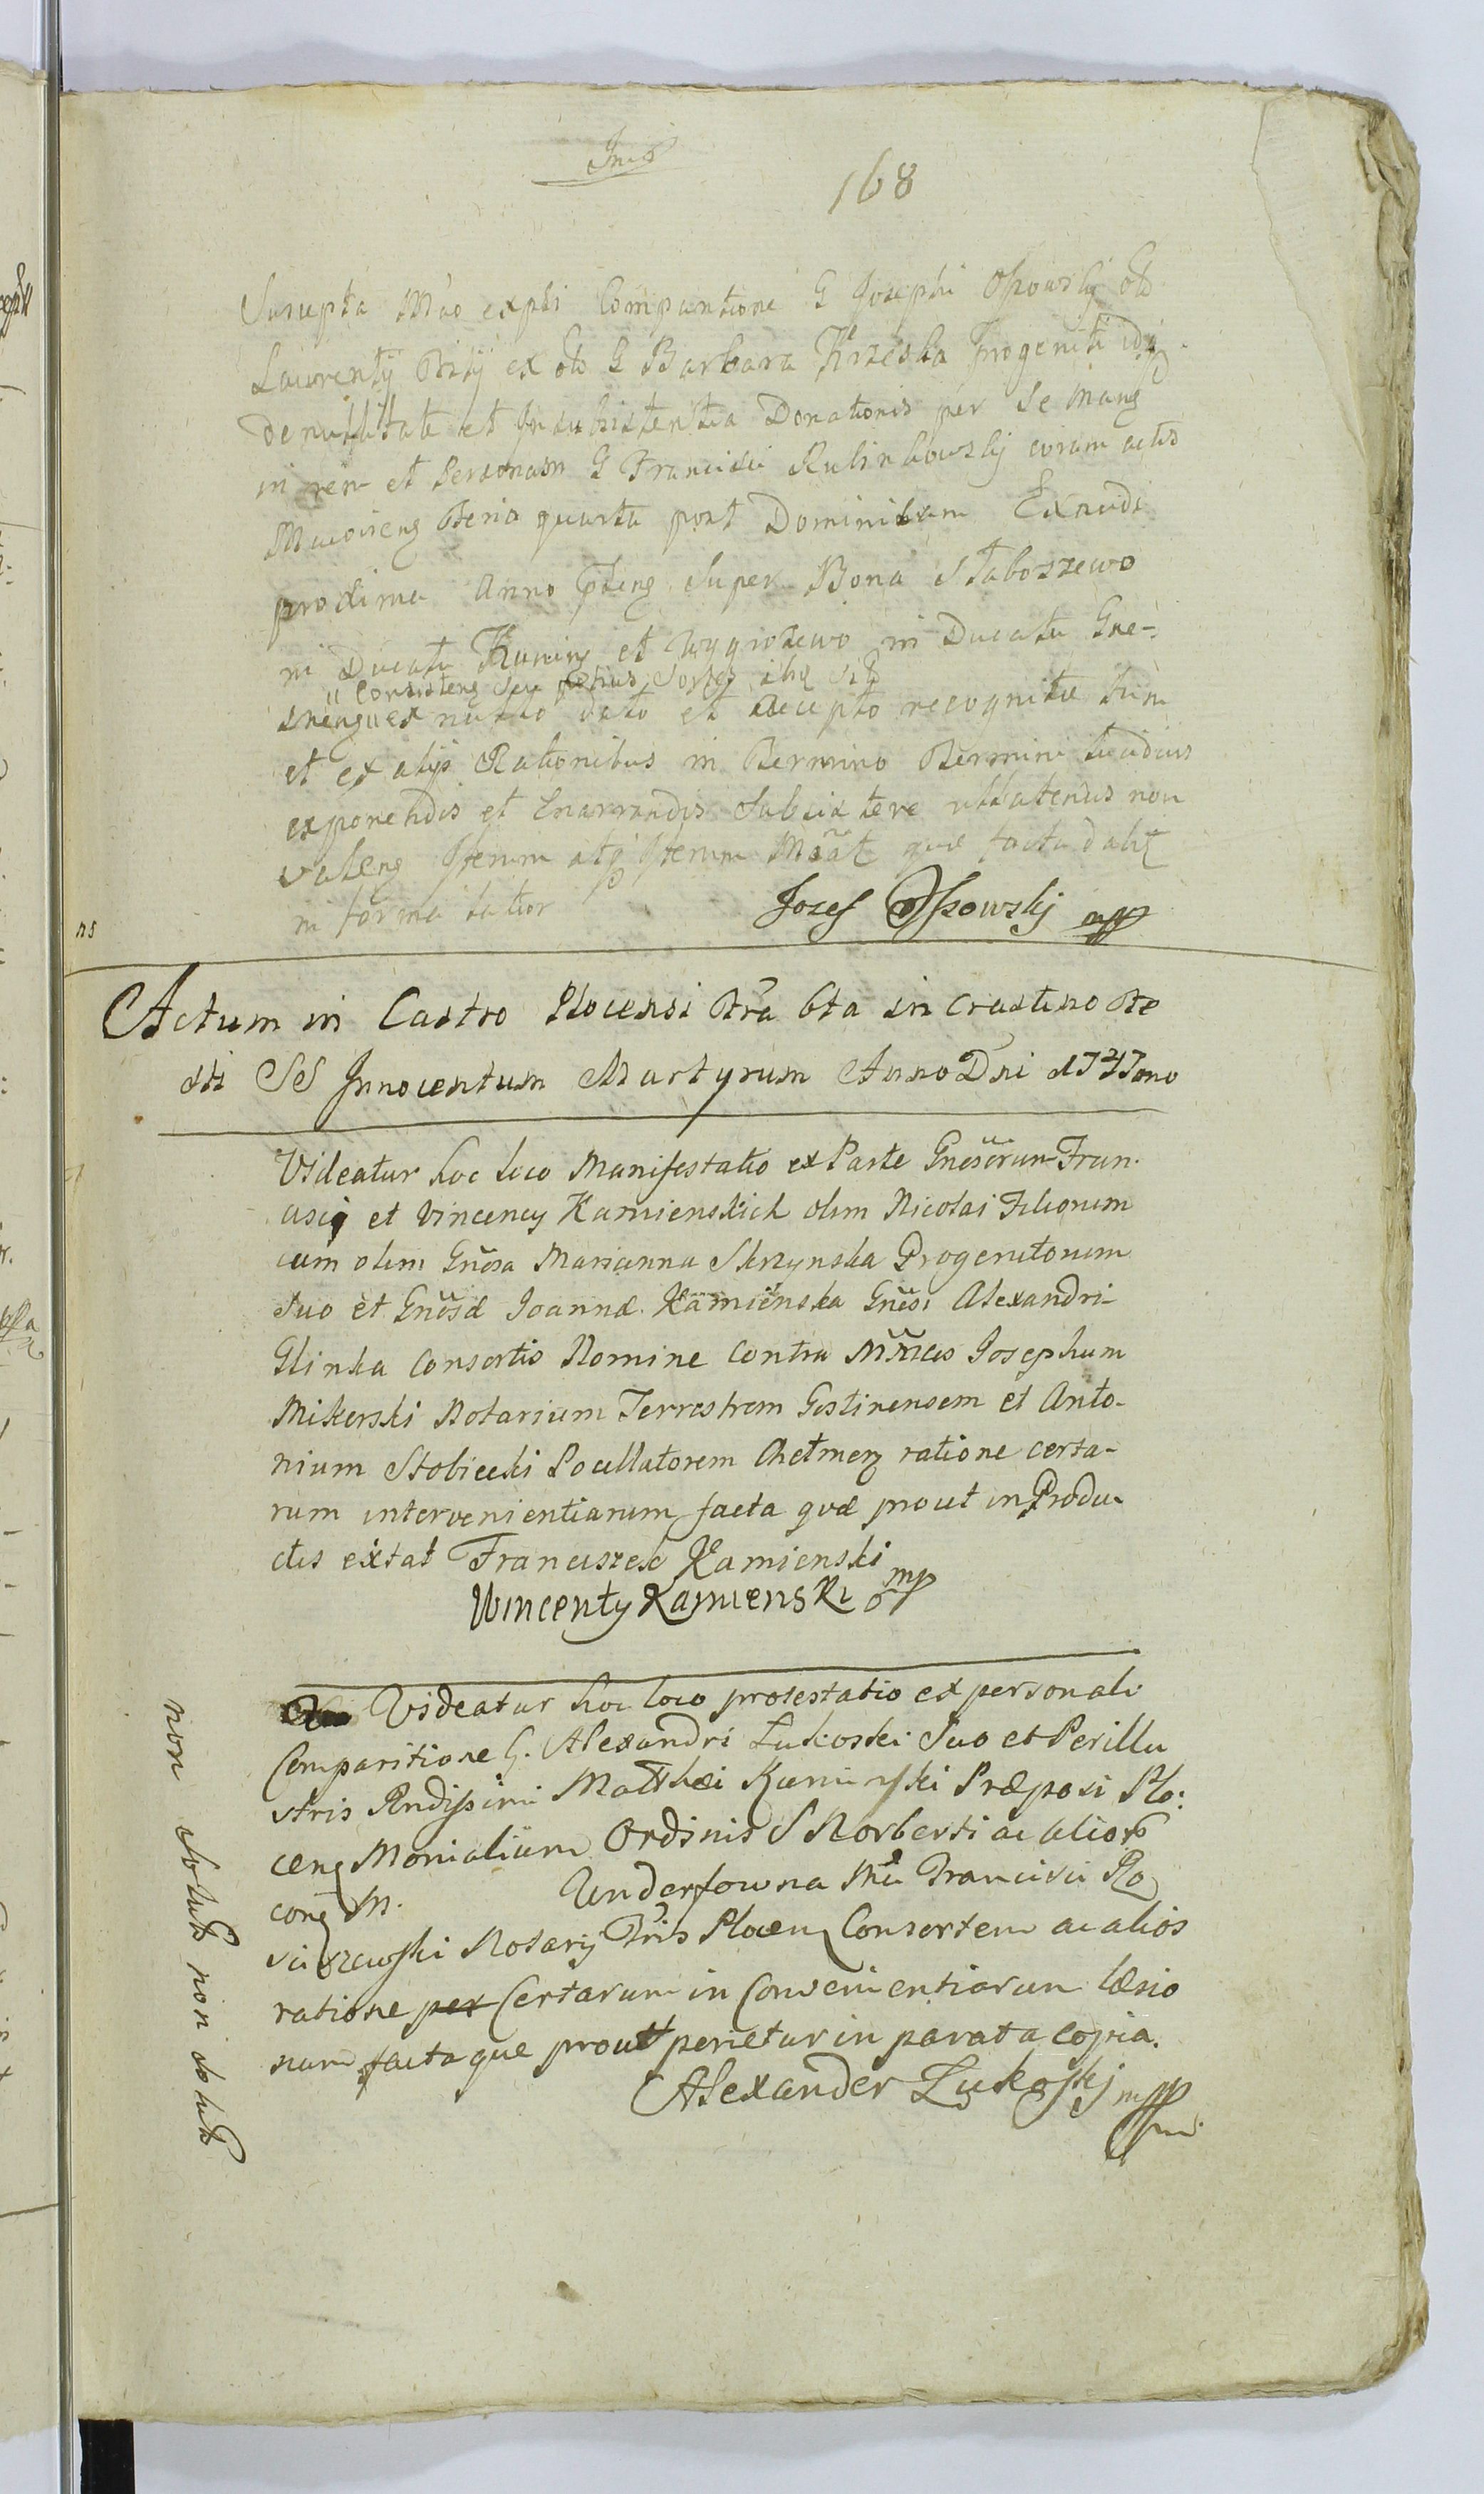 168
Suscepta Mão expsi Comparitione G Josephi Ossowskij olo
Laurentij Filij ex olo G Barbara Krzeska Progeniti
de nullitate et Insubsistentia Donationis per Se
in rem et Personam G Francisci Rulinkowskij coram actis
feria quarta post Dominicam Exaudi
proxima Anno super Bona Staboszewo
in Ducatu et in Ducatu Gne-
Consisteng seu potius Sortes
ex nullo dato et accepto recognitæ tum
et ex alijs Rationibus in Termino Termini lucidius
exponendis et Enarrandis Subsistere ullatenus non
valeng Iterum atq Iterum que facta
in forma latior Jozef Ossowskj mpp
ns
Actum in Castro Plocensi Fra 6ta in crastino Fe
sti SS Innocentum Martyrum Anno Dni
Videatur hoc loco Manifestatio ex Parte Gnosorum Fran-
cisci et Vincency Kamienskich olim Nicolai Filiorum
cum olim Gnosa Marianna Skrzynska Progenitorum
suo et Gnosæ Joannæ Kamienska Gnosi Alexandri
Glinka Consortis Nomine Contra Mñficos Josephum
Mikorski Notarium Terrestrem Gostinensem et Anto-
nium Stobiecki Pocillatorem Chelmeng ratione certa-
rum intervenientiarum facta quæ prout in Produ-
ctis extat Franciszek Kamienski
Wincenty Kamienski mp
Videatur hoc loco protestatio ex personali
Comparitione G. Alexandri Lukoski Suo et Perillu
stris Rndissimi Matthæi Kaminski Præposi Plo:
ceng Monialium Ordinis S Norberti ac alior
cong M. Underfowna Mci Francisci Ro
sciszewski Notarij Tris Ploceng Consortem ac alios
ratione per Certarum in Convenientiarum læsio
num facta que prout perietur in parata copia.
Alexander Lukoskj mpp
non solut non solut